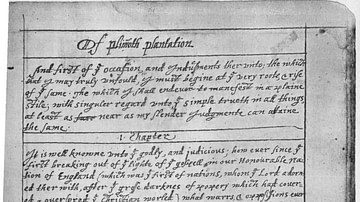 Of plimoth plantation
And first of yͤ occasion and Indusments ther unto; the which
that I may truly unfould, I must begine at yͤ very roote, & rise
of yͤ same. The which I shall endevor to manefest in a plaine
stile; with singuler regard unto yͤ simple trueth in all things,
at least as farr near as my slender Judgmente can attaine
the same.
1 Chapter
It is well knowne unto yͤ godly, and judicious, how ever since yͤ
first breaking out of yͤ lighte of yͤ gospell in our Honourable na-
tion of England (which was yͤ first of nations, whom yͤ Lord adorn-
ed ther with, after yͤ grose darknes of popery which had cover-
ed & overspred yͤ christian world) what warrs & oppossions ever